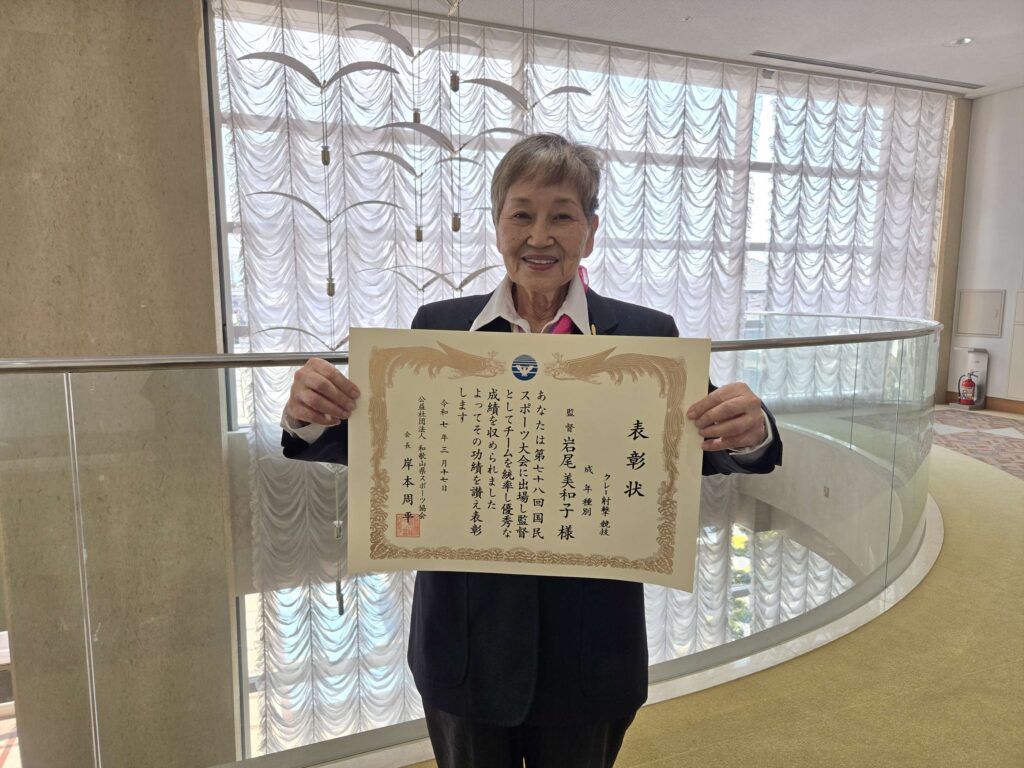 表彰状
クレー射撃 競技
成年種別
監督 岩尾美和子様
あなたは第七十八回国民
スポーツ大会に出場し監督
としてチームを統率し優秀な
成績を収められました
よってその功績を讃え表彰
します
令和七年三月十七日
公益社団法人 和歌山県スポーツ協会
会長 岸本周平